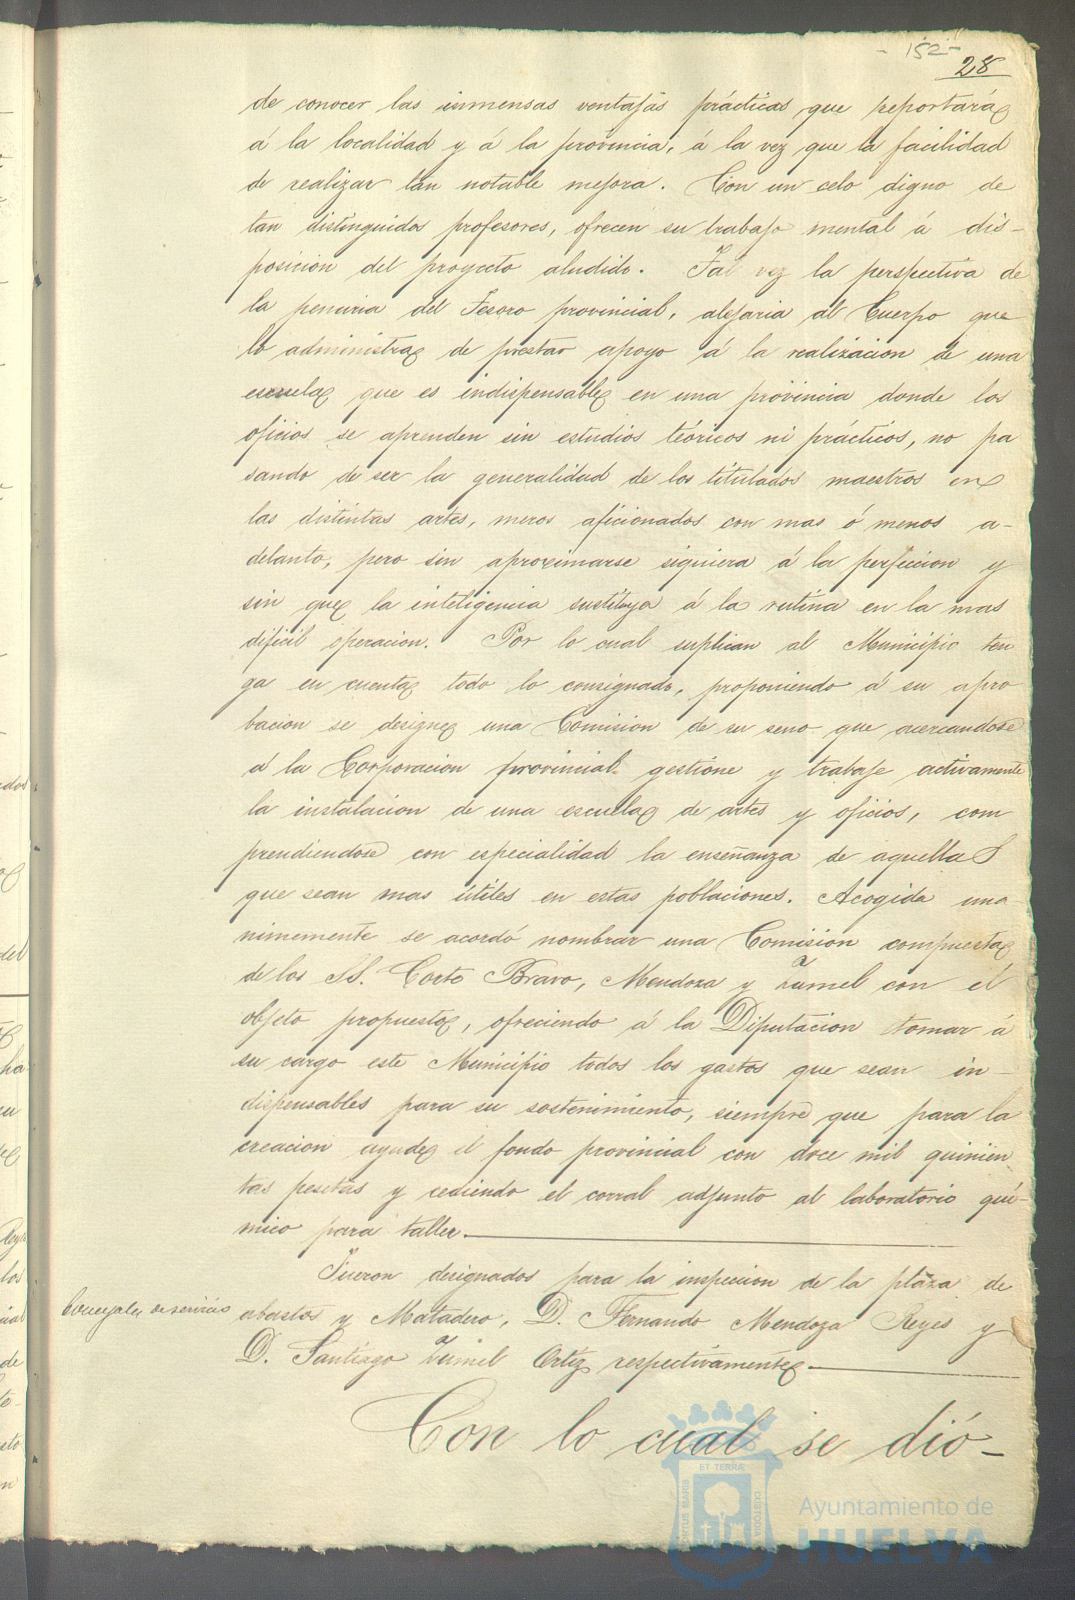 - 152 -
28
de conocer las inmensas ventajas prácticas que reportará
á la localidad y á la provincia, á la vez que la facilidad
de realizar tan notable mejora. Con un celo digno de
tan distinguidos profesores, ofrecen su trabajo mental á dis-
posicion del proyecto aludido. Tal vez la perspectiva de
la penuria del Tesoro provincial, alejaria al Cuerpo que
lo administra de prestar apoyo á la realizacion de una
escuela que es indispensable en una provincia donde los
oficios se aprenden sin estudios teóricos ni prácticos, no pa
sando de ser la generalidad de los titulados maestros en
las distintas artes, meros aficionados con mas ó menos a-
delanto, pero sin aproximarse siquiera á la perfeccion y
sin que la inteligencia sustituya á la rutina en la mas
dificil operacion. Por lo cual suplican al Municipio ten
ga en cuenta todo lo consignado, proponiendo á su apro
bacion se designe una Comision de su seno que acercandose
á la Corporacion provincial gestione y trabaje activamente
la instalacion de una escuela de artes y oficios, com
prendiendose con especialidad la enseñanza de aquellas
que sean mas útiles en estas poblaciones. Acogida una
nimemente se acordó nombrar una Comision compuesta
de los SS. Corto Bravo, Mendoza y Jumel con el
objeto propuesto, ofreciendo á la Diputacion tomar á
su cargo este Municipio todos los gastos que sean in-
dispensables para su sostenimiento, siempre que para la
creacion ayude el fondo provincial con doce mil quinien
tas pesetas y cediendo el corral adjunto al laboratorio quí-
mico para taller.
Fueron designados para la inspeccion de la plaza de
Concejales de servicio
abastos y Matadero, D. Fernando Mendoza Reyes y
D. Santiago Jumel Ortiz respectivamente
Con lo cual se dió-
ET TERRÆ
PORTUS MARIS
CUSTODIA
Ayuntamiento de
HUELVA